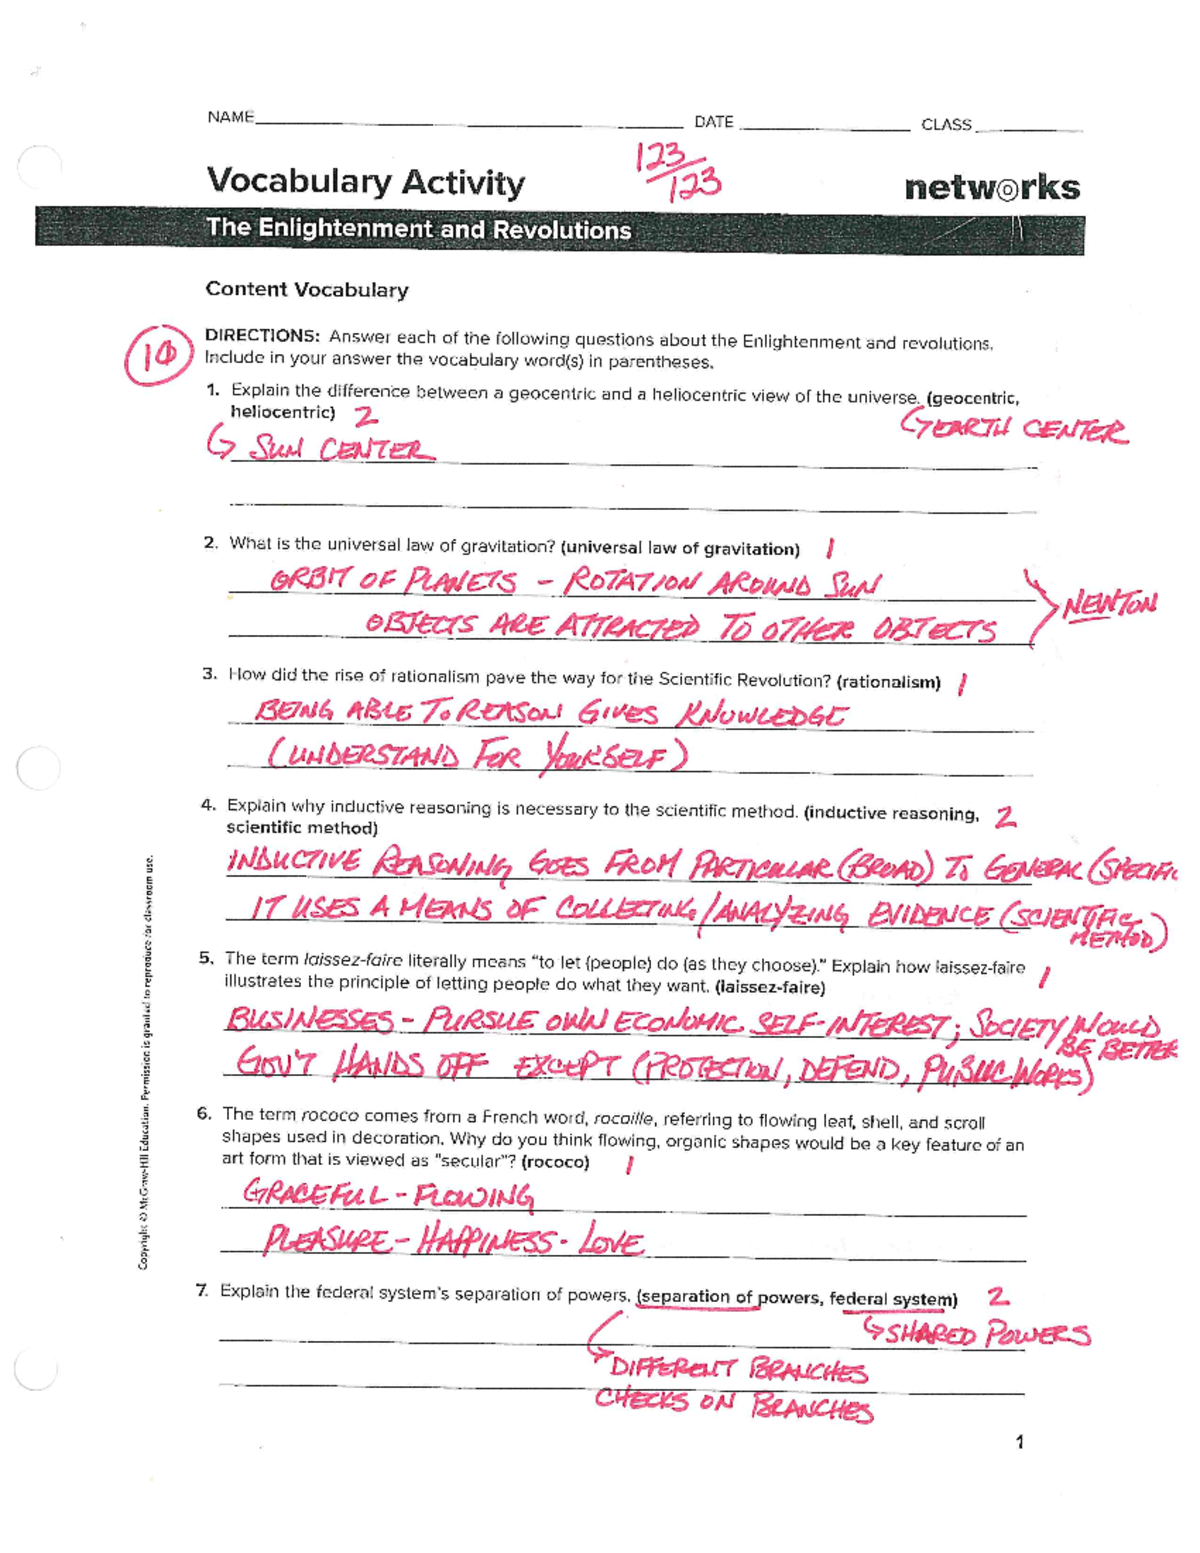 NAME DATE CLASS
123/123
Vocabulary Activity
networks
The Enlightenment and Revolutions
Content Vocabulary
10
DIRECTIONS: Answer each of the following questions about the Enlightenment and revolutions.
Include in your answer the vocabulary word(s) in parentheses.
1. Explain the difference between a geocentric and a heliocentric view of the universe. (geocentric,
heliocentric) 2
EARTH CENTER
SUN CENTER
2. What is the universal law of gravitation? (universal law of gravitation) 1
ORBIT OF PLANETS - ROTATION AROUND SUN
NEWTON
OBJECTS ARE ATTRACTED TO OTHER OBJECTS
3. How did the rise of rationalism pave the way for the Scientific Revolution? (rationalism) 1
BEING ABLE TO REASON GIVES KNOWLEDGE
(UNDERSTAND FOR YOURSELF)
4. Explain why inductive reasoning is necessary to the scientific method. (inductive reasoning, 2
scientific method)
INDUCTIVE REASONING GOES FROM PARTICULAR (BROAD) TO GENERAL (SPECIFIC
IT USES A MEANS OF COLLECTING/ANALYZING EVIDENCE (SCIENTIFIC
METHOD)
5. The term laissez-faire literally means "to let (people) do (as they choose)." Explain how laissez-faire 1
illustrates the principle of letting people do what they want. (laissez-faire)
BUSINESSES - PURSUE OWN ECONOMIC SELF-INTEREST; SOCIETY WOULD
BE BETTER
GOV'T HANDS OFF EXCEPT (PROTECTION, DEFEND, PUBLIC WORKS)
6. The term rococo comes from a French word, rocaille, referring to flowing leaf, shell, and scroll
shapes used in decoration. Why do you think flowing, organic shapes would be a key feature of an
art form that is viewed as "secular"? (rococo) 1
GRACEFUL - FLOWING
PLEASURE - HAPPINESS - LOVE
7. Explain the federal system's separation of powers. (separation of powers, federal system) 2
SHARED POWERS
DIFFERENT BRANCHES
CHECKS ON BRANCHES
Copyright © McGraw-Hill Education. Permission is granted to reproduce for classroom use.
1